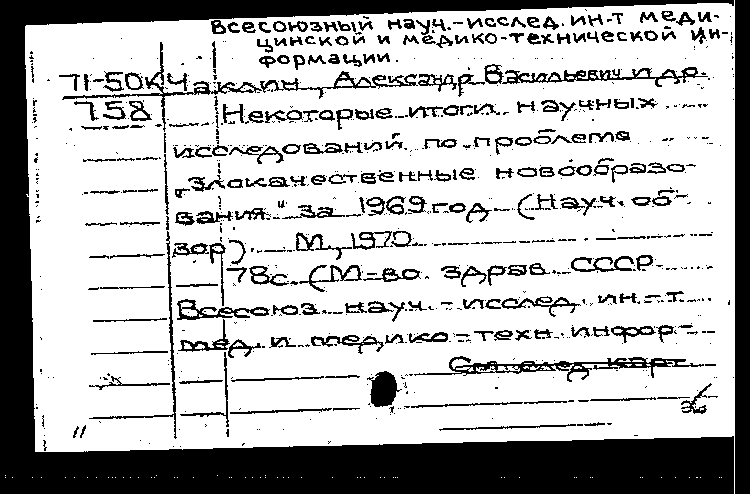 Всесоюзный науч.-исслед. ин-т меди-
цинской и медико-технической ин-
формации.
71-50К Чаклин, Александр Васильевич и др.
758 Некоторые итоги научных
исследований по проблеме
„Злокачественные новообразо-
вания" за 1969 год. (Науч. об-
зор). М., 1970.
78с. (М-во здрав. СССР.
Всесоюз. науч.-исслед. ин-т.
мед. и медико-техн. инфор-
См. след. карт.
11